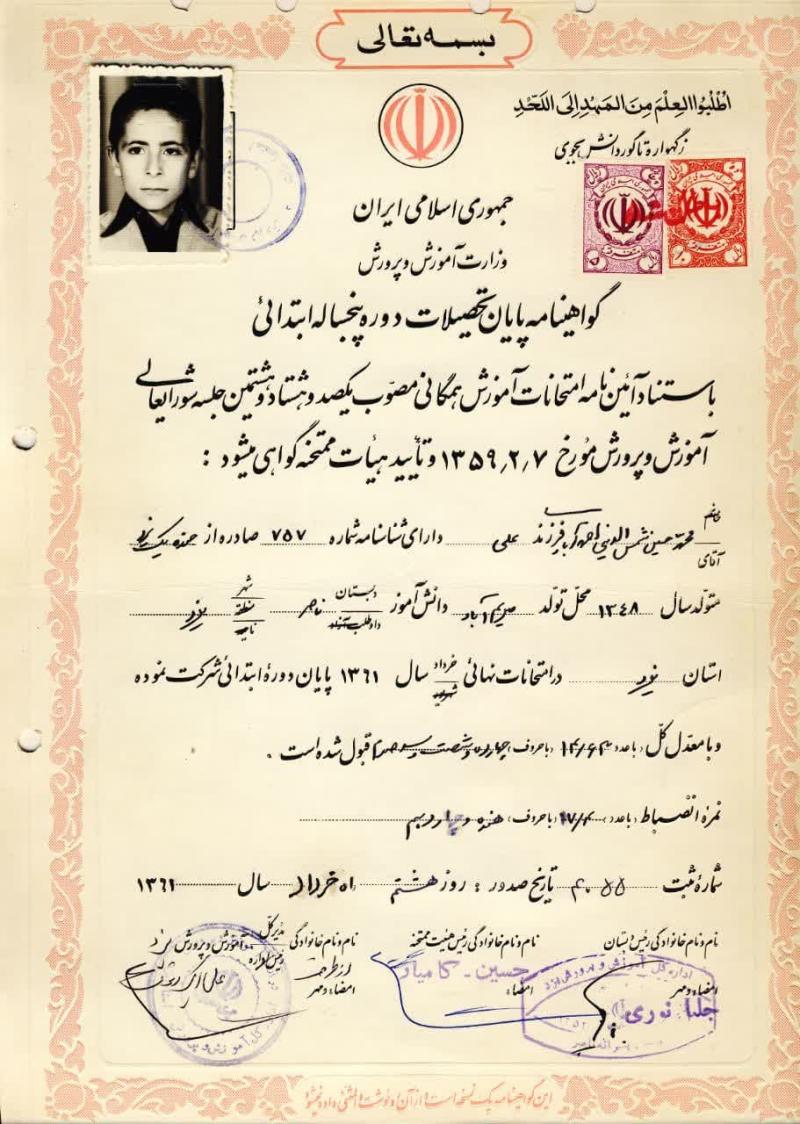 بسمه تعالی
اُطْلُبُوا العِلْمَ مِنَ المَهْدِ اِلَی اللَّحْدِ
زگهواره تا گور دانش بجوی
جمهوری اسلامی ایران
وزارت آموزش و پرورش
گواهینامه پایان تحصیلات دوره پنجساله ابتدائی
باستناد آئین نامه امتحانات آموزش همگانی مصوّب یکصد و هشتاد و هشتمین جلسه شورایعالی
آموزش و پرورش مورّخ ۱۳۵۹٫۲٫۷ و تأیید هیأت ممتحنه گواهی میشود :
خانم
آقای محمد حسین شمس الدینی فرزند علی دارای شناسنامه شماره ۷۵۷ صادره از حوزه یک یزد
متولّد سال ۱۳۴۸ محلّ تولّد مریم آباد دانش آموز دبستان ناصر شهر یزد
داوطلب آزاد منطقه
ناحیه
استان یزد در امتحانات نهائی خرداد سال ۱۳۶۱ پایان دورهٔ ابتدائی شرکت نموده
شهریور
و با معدّل کلّ (با عدد) ۱۴/۶۳ (با حروف) چهارده و شصت و سه صدم قبول شده است .
نمرهٔ انضباط (با عدد) ۱۷/۴ (با حروف) هفده و چهار دهم
شمارهٔ ثبت ۴۰۵۵ تاریخ صدور : روز هشتم ماه خرداد سال ۱۳۶۱
نام و نام خانوادگی رئیس دبستان
نام و نام خانوادگی رئیس هیئت ممتحنه
نام و نام خانوادگی مدیر کل آموزش و پرورش یزد
رئیس اداره
امضاء و مهر
امضاء
امضاء و مهر
حسین - کامیاب
نوری
از طرف
این گواهینامه یک نسخه است و از آن رونوشت و المثنی داده نمیشود